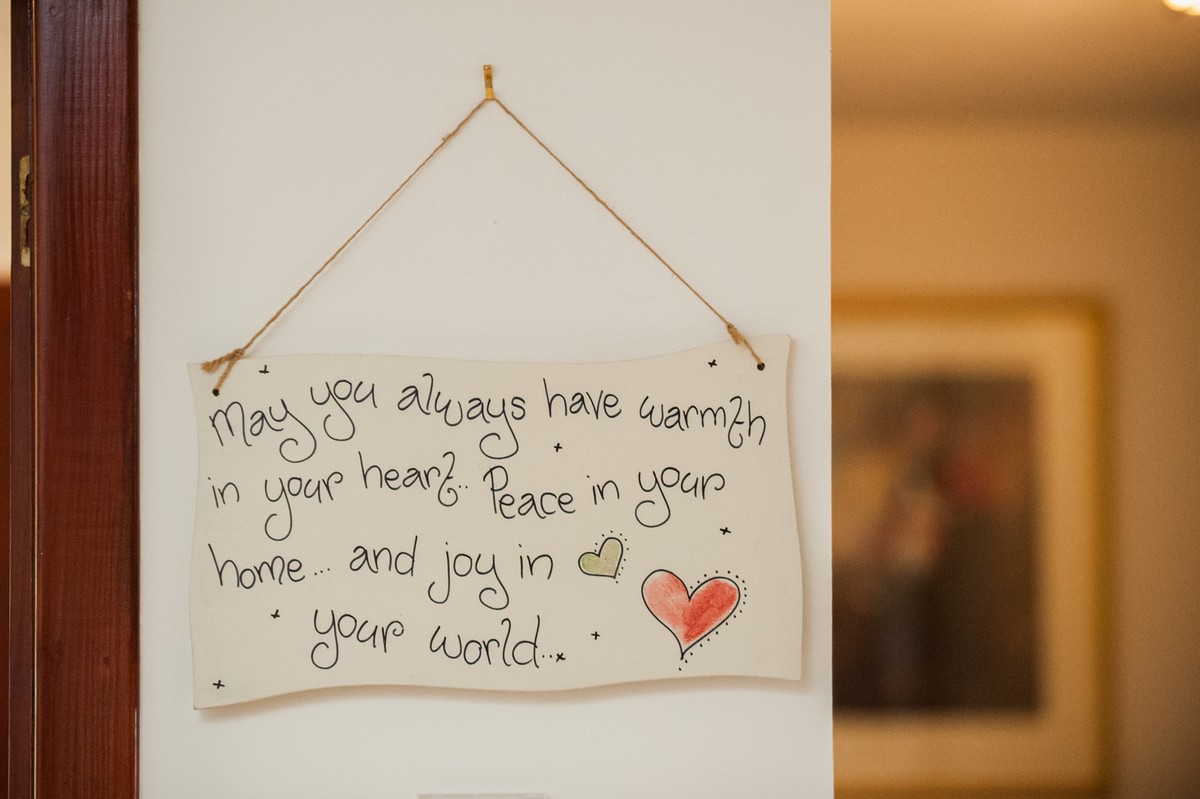 May you always have warmth
in your heart.. Peace in your
home... and joy in
your world...